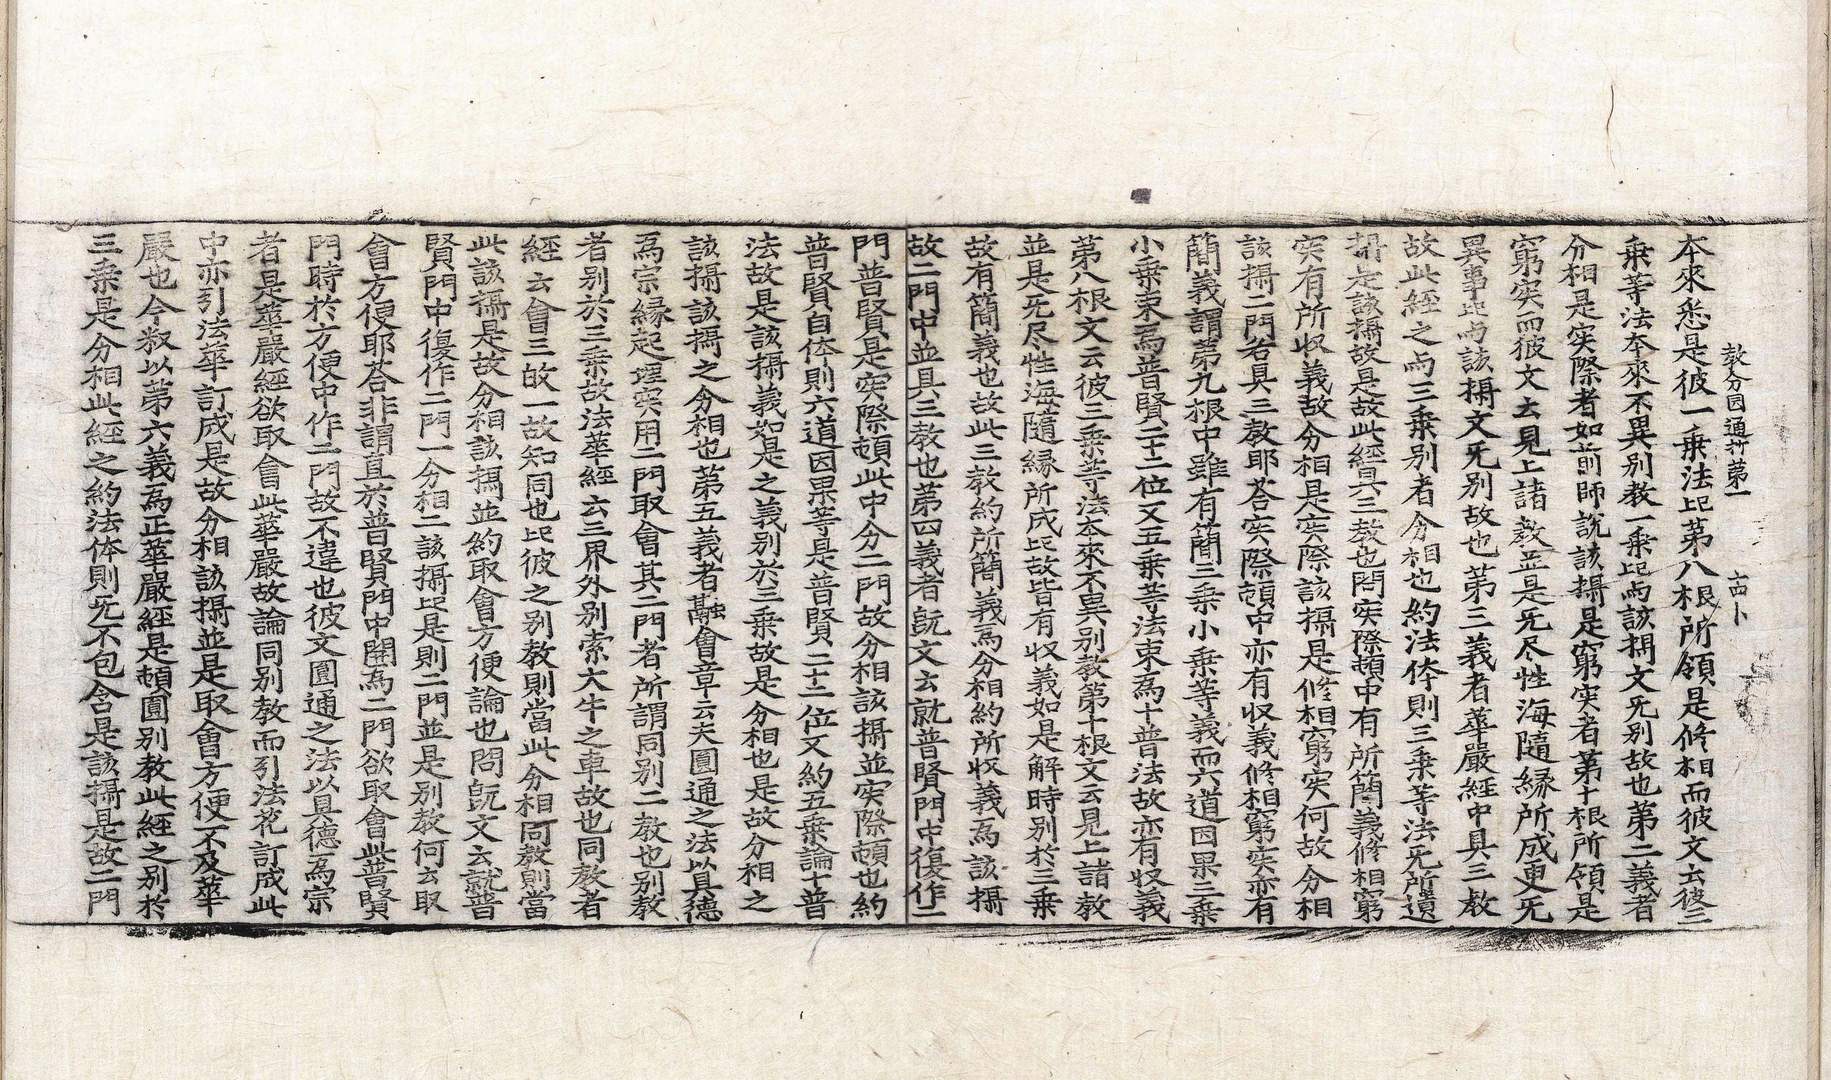 教分囙通抄第一　六西卜
本來悉是彼一乗法㠯第八根所領是修相而彼文云彼三
乗等法夲來不異别教一乗㠯为該攝文旡别故也第二義者
分相是实際者如前師說該攝是窮实者第十根所領是
窮实而彼文去見上諸教並是旡尽性海隨緣所成更旡
異事㠯为該攝文旡别故也第三義者華嚴經中具三教
故此經之为三乗别者分相也約法体則三乗等法旡所遺
攝是該攝故是故此經具三教也問实際頓中有所簡義修相窮
实有所収義故分相是实際該攝是修相窮实何故分相
該攝二門各具三教耶荅实際頓中亦有収義修相窮实亦有
簡義謂第九根中雖有簡三乗小乗等義而六道因果三乗
小乗束爲普賢二十二位又五乗等法束爲十普法故亦有収義
第八根文云彼三乗等法夲來不異别教第十根文云見上諸教
並是旡尽性海隨縁所成㠯故皆有収義如是解時别於三乗
故有簡義也故此三教約所簡義爲分相約所収義爲該攝
故二門中並具三教也第四義者旣文云就普賢門中復作二
門普賢是实際頓此中分二門故分相該攝並实際頓也約
普賢自体則六道因果等是普賢二十二位又約五乗論十普
法故是該攝義如是之義别於三乗故是分相也是故分相之
該攝該攝之分相也第五義者融會章云夫圓通之法以具德
爲宗縁起理实用二門取會其二門者所謂同别二教也别教
者别於三乗故法華經云三界外别索大牛之車故也同教者
經云會三故一故知同也㠯彼之别教則當此分相同教則當
此該攝是故分相該攝並約取會方便論也問旣文云就普
賢門中復作二門一分相二該攝㠯是則二門並是别教何云取
會方便耶荅非謂直於普賢門中開爲二門欲取會此普賢
門時於方便中作二門故不違也彼文圓通之法以具德爲宗
者是華嚴經欲取會此華嚴故論同别教而引法花訂成此
中亦引法華訂成是故分相該攝並是取會方便不及華
嚴也今叙以第六義爲正華嚴經是頓圓别教此經之别於
三乗是分相此經之約法体則旡不包含是該攝是故二門